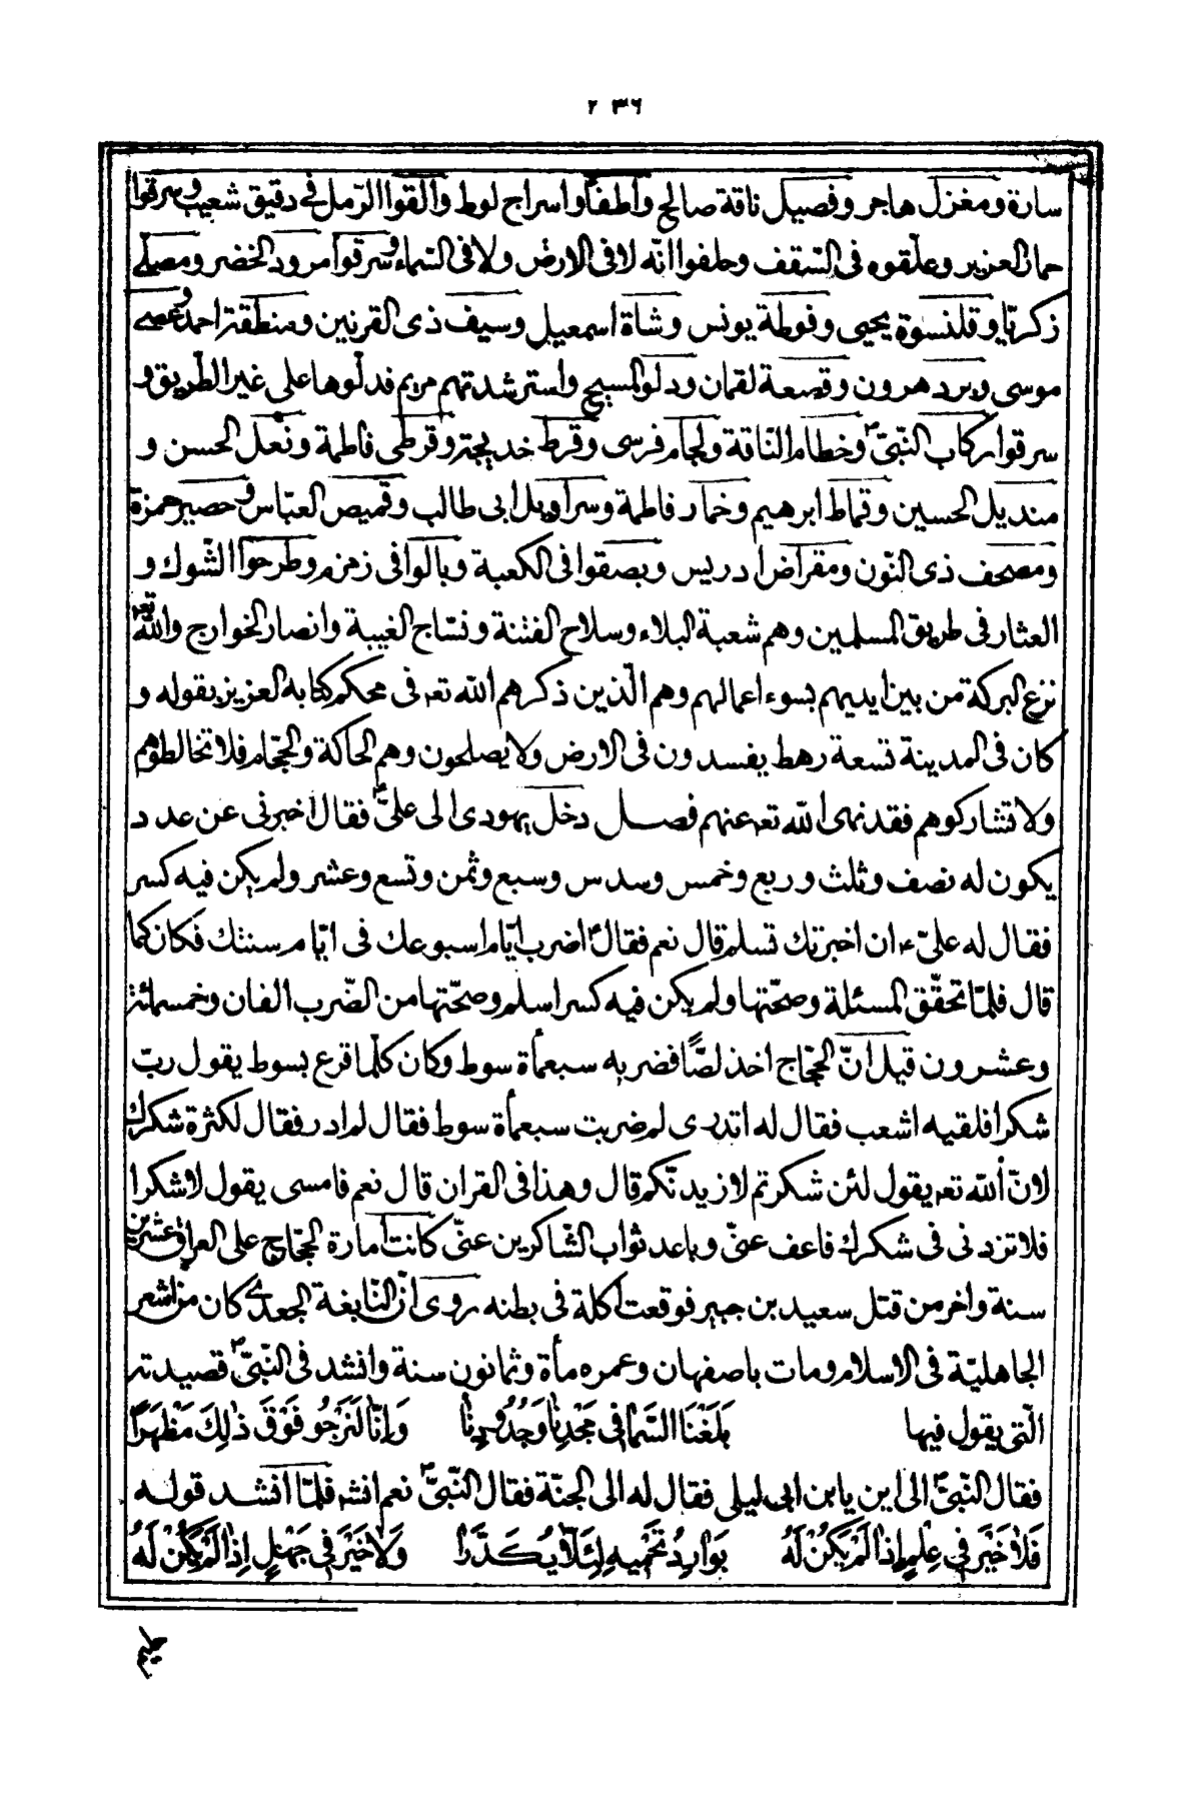 ٢٣٦
سارة ومغزل هاجر وفصيل ناقة صالح وأطفأوا سراج لوط وألقوا الرّمل في دقيق شعيب وسرقوا
حمار العزير وعلّقوه في السّقف وحلفوا انّه لا في الارض ولا في السّماء وسرقوا مرود الخضر ومصلّى
زكريّا وقلنسوة يحيى وفوطة يونس وشاة اسمعيل وسيف ذى القرنين ومنطقة احمد وعصى
موسى وبرد هرون وقصعة لقمان ودلو المسيح واسترشدتهم مريم فدلّوها على غير الطّريق و
سرقوا ركاب النّبىّ ص وخطام النّاقة ولجام فرسى وقرط خديجة وقرطى فاطمة ونعل الحسن و
منديل الحسين وقماط ابرهيم وخمار فاطمة وسراويل ابى طالب وقميص العبّاس وحصير حمزة
ومصحف ذى النّون ومقراض ادريس وبصقوا فى الكعبة وبالوا فى زمزم وطرحوا الشّوك و
العثار فى طريق المسلمين وهم شعبة البلاء وسلاح الفتنة ونسّاج الغيبة وانصار الخوارج والله تعه
نزع البركة من بين ايديهم بسوء اعمالهم وهم الّذين ذكرهم الله تعه فى محكم كتابه العزيز بقوله و
كان فى المدينة تسعة رهط يفسدون فى الارض ولا يصلحون وهم الحاكة والحجّام فلا تخالطوهم
ولا تشاركوهم فقد نهى الله تعه عنهم فصل دخل يهودى الى علىّ ع فقال اخبرنى عن عدد
يكون له نصف وثلث وربع وخمس وسدس وسبع وثمن وتسع وعشر ولم يكن فيه كسر
فقال له علىّ ء ان اخبرتك تسلم قال نعم فقال ع اضرب ايّام اسبوعك فى ايّام سنتك فكان كما
قال فلمّا تحقّق المسئلة وصحّتها ولم يكن فيه كسر اسلم وصحّتها من الضّرب الفان وخمسمائة
وعشرون قيل انّ الحجّاج اخذ لصًّا فضربه سبعمأة سوط وكان كلّما قرع بسوط يقول ربّ
شكرا فلقيه اشعب فقال له اتدرى لم ضربت سبعمأة سوط فقال لم ادر فقال لكثرة شكرك
لانّ الله تعه يقول لئن شكرتم لازيدنّكم قال وهذا فى القران قال نعم فامسى يقول لا شكرا
فلا تزدنى فى شكرك فاعف عنّى وباعد ثواب الشّاكرين عنّى كانت امارة الحجّاج على العراق عشرين
سنة واخر من قتل سعيد بن جبير فوقعت أكلة فى بطنه روى انّ النّابغة الجعدى كان من اشعر
الجاهليّة فى الاسلام ومات باصفهان وعمره مأة وثمانون سنة وانشد فى النّبىّ ص قصيدته
الّتى يقول فيها بَلَغْنَا السَّمٰا فى مَجْدِنٰا وَجُدُودِنٰا وَاِنّٰا لَنَرْجُو فَوْقَ ذٰلِكَ مَظْهَرًا
فقال النّبىّ ص الى اين يا بن ابى ليلى فقال له الى الجنّة فقال النّبىّ ص نعم انشه فلمّا انشد قوله
فَلٰا خَيْرَ فى عِلْمٍ اِذٰا لَمْ يَكُنْ لَهُ بَوٰادِرُ تَحْميهِ لِئَلّٰا يُكَدَّرٰا وَلٰا خَيْرَ فى جَهْلٍ اِذٰا لَمْ يَكُنْ لَهُ
حليم